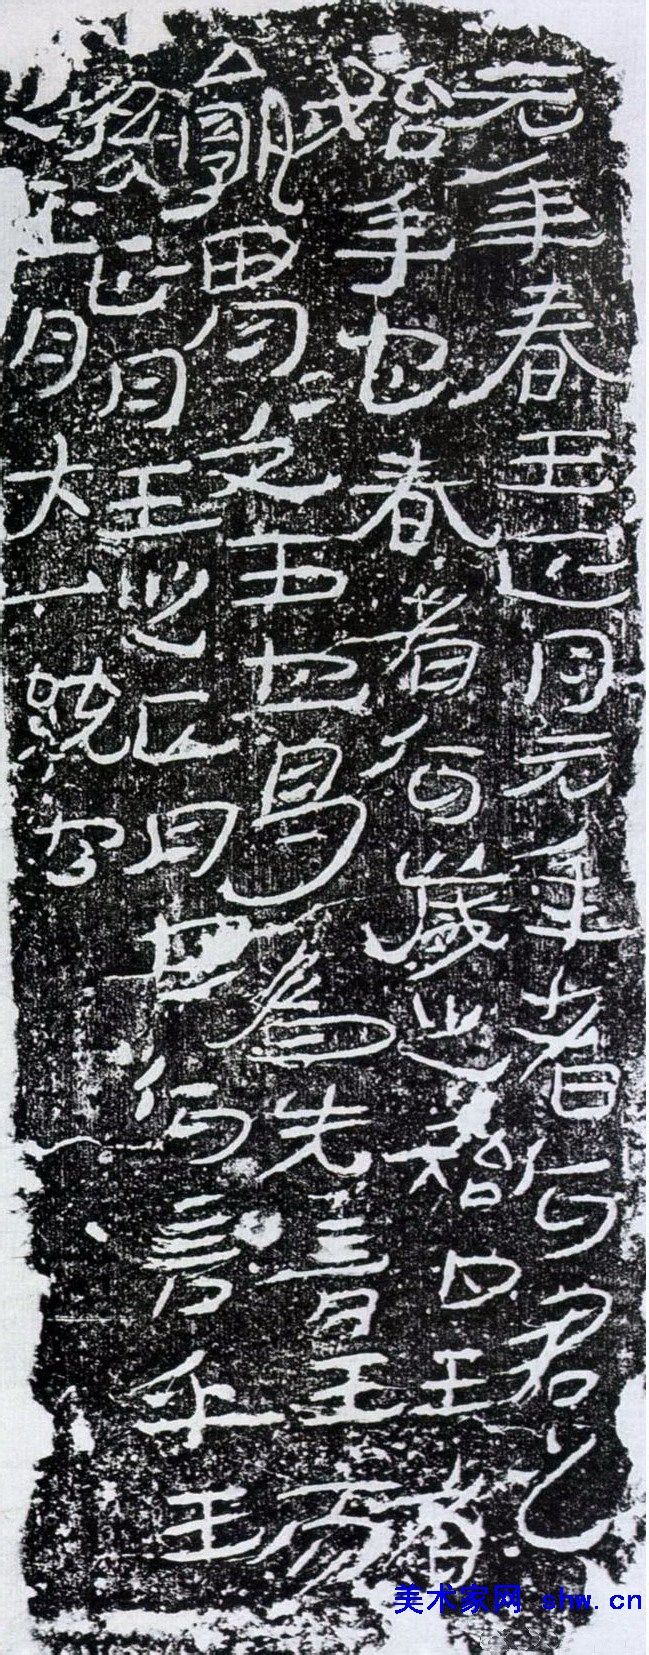 元年春王正月元年者何君之
始年也春者何歲之始也王者
孰胃〻文王也曷為先言王而
後正月王之正月也何言乎王
之正月大一統
美术家网 shw.cn